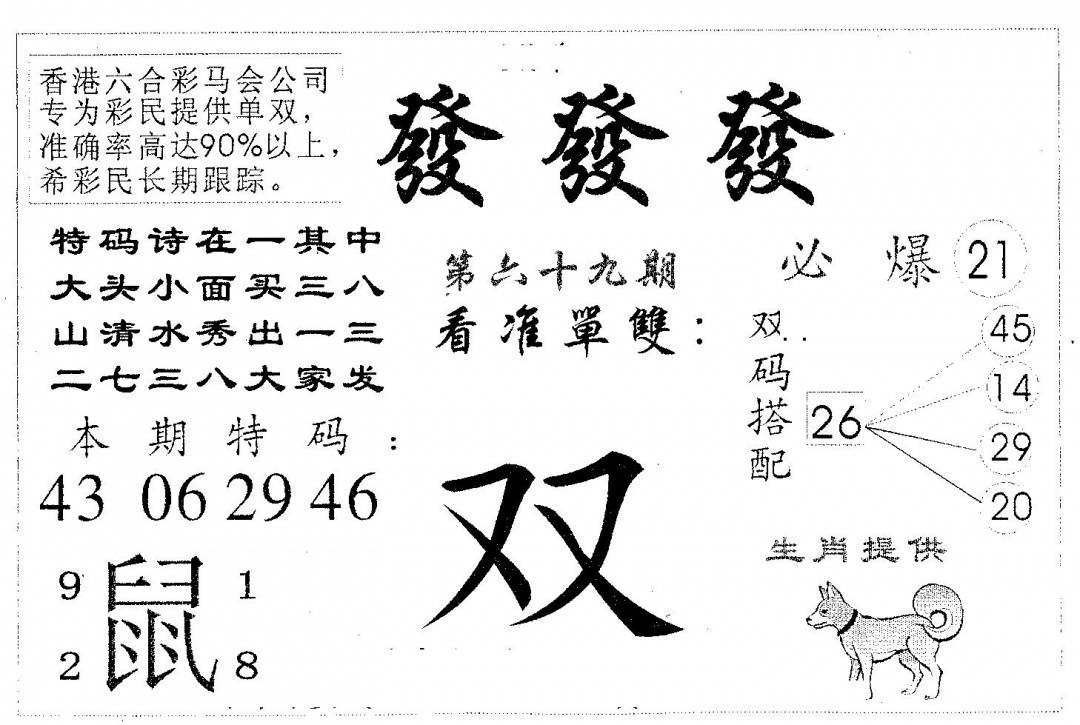 香港六合彩马会公司
专为彩民提供单双，
准确率高达90%以上，
希彩民长期跟踪。
發發發
特码诗在一其中
大头小面买三八
山清水秀出一三
二七三八大家发
本期特码：
43 06 29 46
9 鼠 1
2 8
第六十九期
看准單雙：
双
必爆 21
双码搭配
26
45
14
29
20
生肖提供